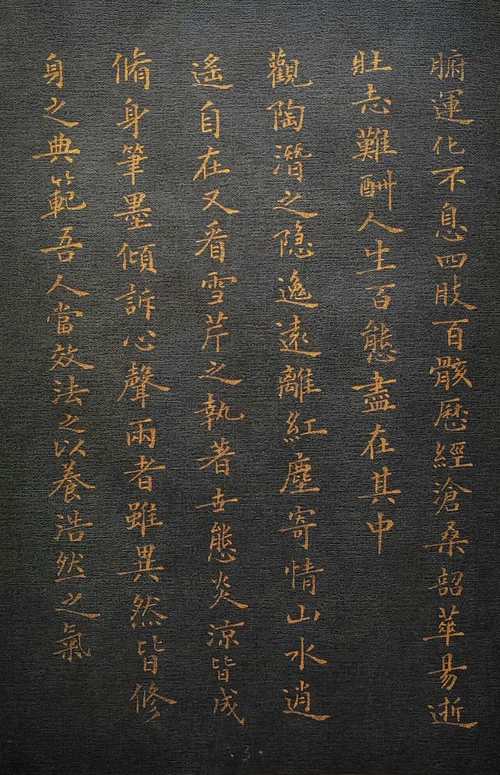 腑運化不息四肢百骸歷經滄桑韶華易逝
壯志難酬人生百態盡在其中
觀陶潛之隐逸遠離紅塵寄情山水逍
遙自在又看雪芹之執著世態炎涼皆成
脩身筆墨傾訴心聲兩者雖異然皆修
身之典範吾人當效法之以養浩然之氣
3